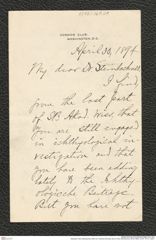 COSMOS CLUB,
WASHINGTON, D.C.
April 30, 1894
My dear Dr Steindachner
I find,
from the last part
of SB Akad Wiss that
you are still engaged
in ichthyological in-
vestigation and that
you have been adding
lately to the Ichthy-
ologische Beiträge.
But you have not